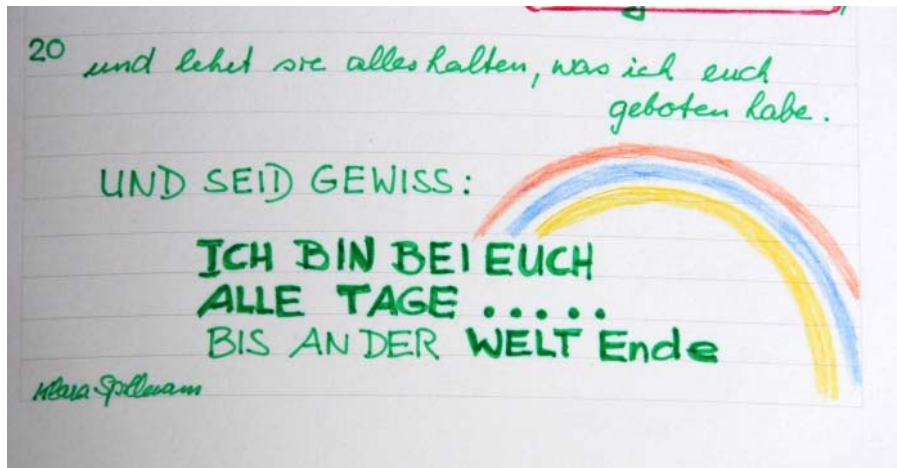 20 und lehret sie alles halten, was ich euch
geboten habe.
UND SEID GEWISS:
ICH BIN BEI EUCH
ALLE TAGE .....
BIS AN DER WELT Ende
Klara Spillmann